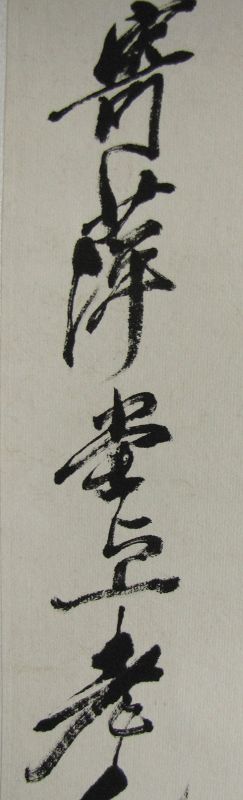 寄萍堂上老